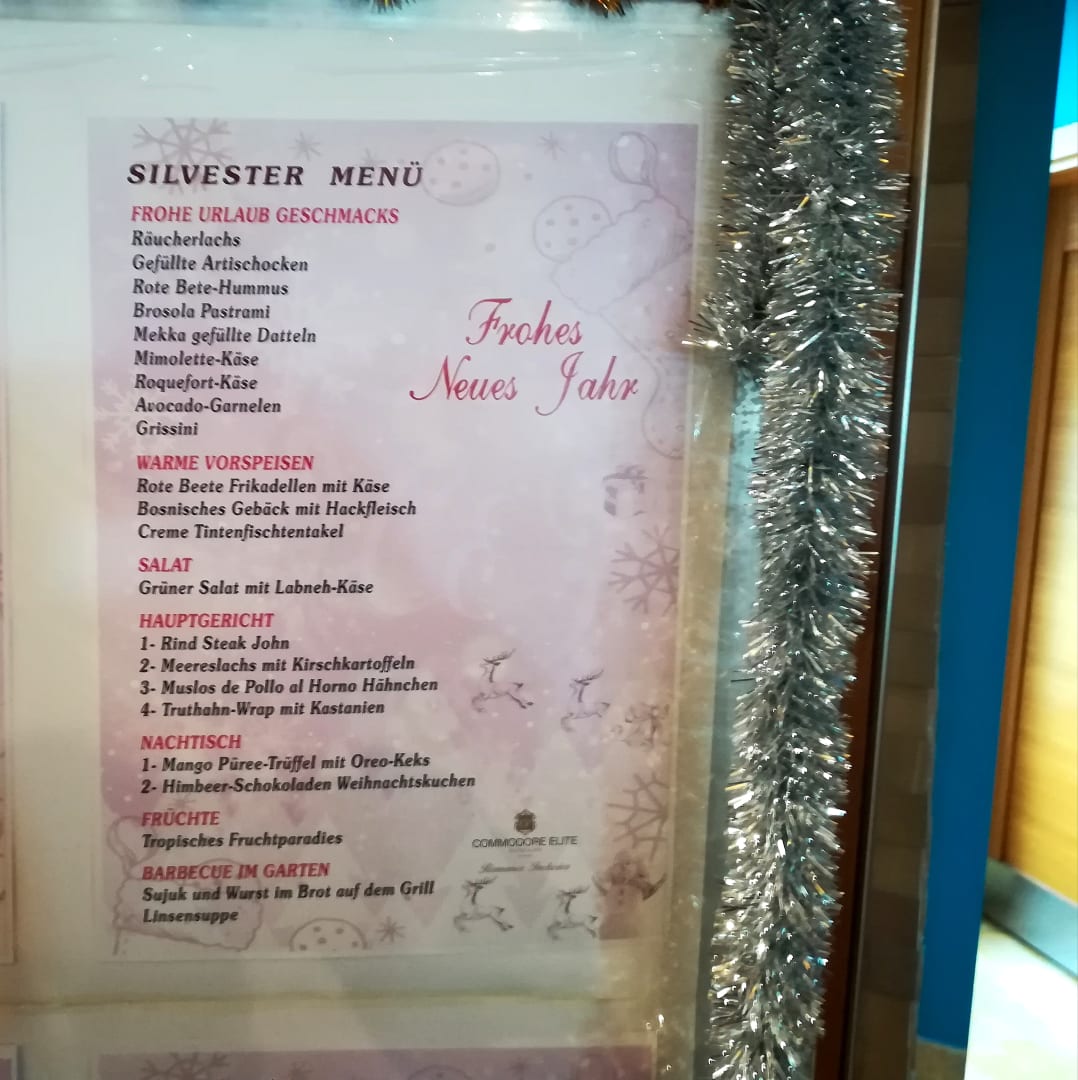 SILVESTER MENÜ
FROHE URLAUB GESCHMACKS
Räucherlachs
Gefüllte Artischocken
Rote Bete-Hummus
Brosola Pastrami
Mekka gefüllte Datteln
Mimolette-Käse
Roquefort-Käse
Avocado-Garnelen
Grissini
Frohes
Neues Jahr
WARME VORSPEISEN
Rote Beete Frikadellen mit Käse
Bosnisches Gebäck mit Hackfleisch
Creme Tintenfischtentakel
SALAT
Grüner Salat mit Labneh-Käse
HAUPTGERICHT
1- Rind Steak John
2- Meereslachs mit Kirschkartoffeln
3- Muslos de Pollo al Horno Hähnchen
4- Truthahn-Wrap mit Kastanien
NACHTISCH
1- Mango Püree-Trüffel mit Oreo-Keks
2- Himbeer-Schokoladen Weihnachtskuchen
FRÜCHTE
Tropisches Fruchtparadies
COMMODORE ELITE
BARBECUE IM GARTEN
Sujuk und Wurst im Brot auf dem Grill
Linsensuppe